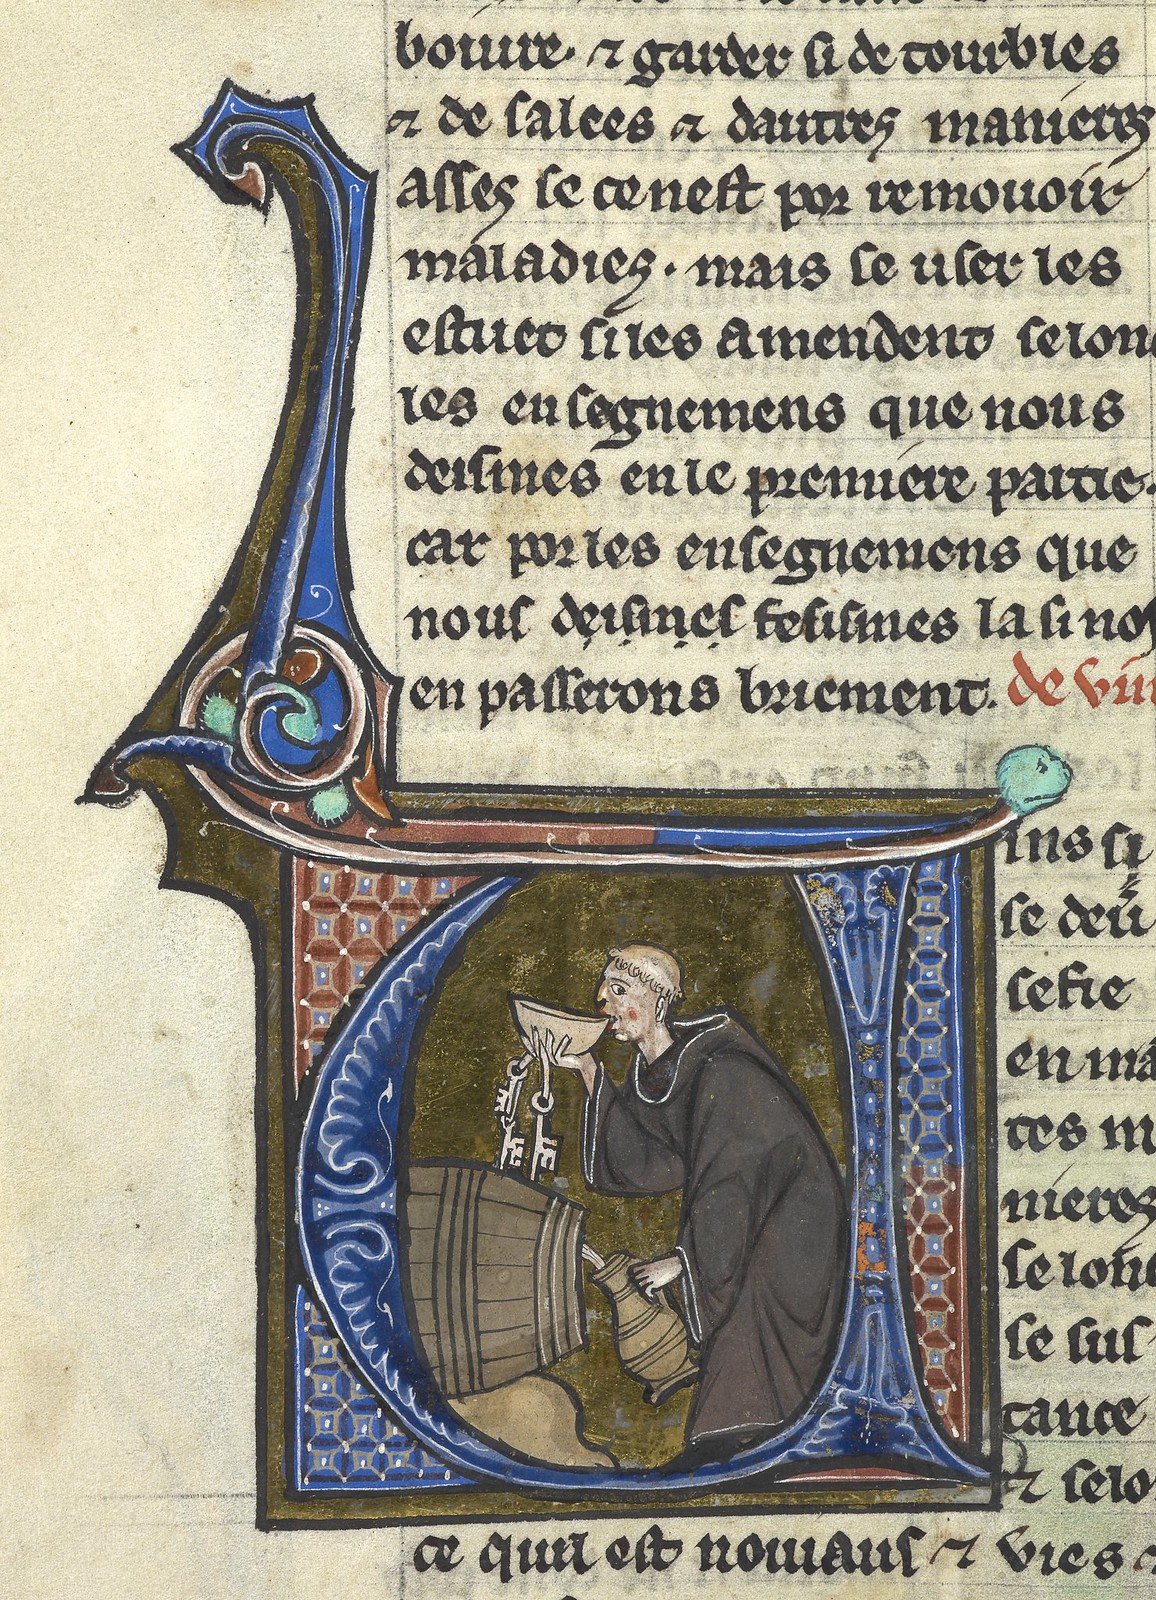 boiure· ⁊ garder si de tourbles
⁊ de salees ⁊ dautres manieres
asses se ce nest por remouoir
maladies· mais se user les
estuet si les amendent selonc
les ensegnemens que nous
deismes en le premiere partie·
car por les ensegnemens que
nous deismes fesismes la si nos
en passerons briement. de vin
ins si
se deu
sefie
en ma
tes m
nieres
se lonc
se sus
tance
⁊ selo
ce quil est nouiaus ⁊ vies